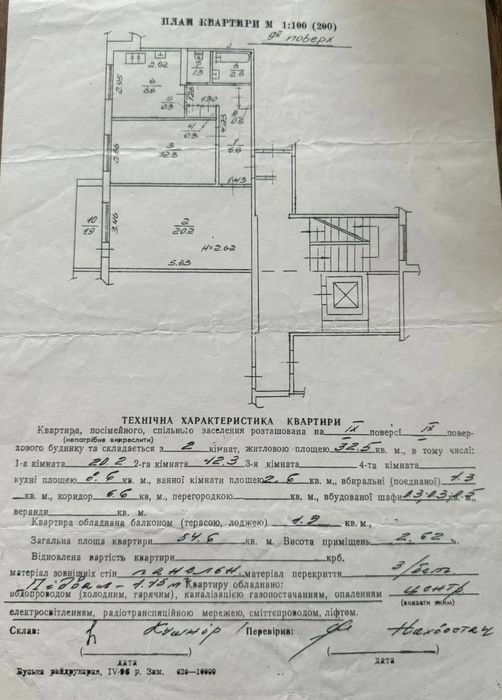 ПЛАН КВАРТИРИ М 1:100 (200)
9й поверх
2.82
2.95
6
8.6
7
1.3
8
2.6
5
0.3
1.26
1.30
9
0.5
4
0.3
4.23
3
12.3
2.86
1
6.6
1.43
10
1.9
3.46
2
20.2
H=2.62
5.83
ТЕХНІЧНА ХАРАКТЕРИСТИКА КВАРТИРИ
Квартира, посімейного, спільного заселення розташована на IX поверсі IX повер-
(непотрібне викреслити)
хового будинку та складається з 2 кімнат, житловою площею 32.5 кв. м., в тому числі:
1-а кімната 20.2 2-га кімната 12.3 3-я кімната 4-та кімната
кухні площею 8.6 кв. м., ванної кімнати площею 2.6 кв. м., вбиральні (поєднаної) 1.3
кв. м., коридор 6.6 кв. м., перегородкою кв. м., вбудованої шафи 0.3,0.3,0.5
веранди кв. м.
Квартира обладнана балконом (терасою, лоджею) 1.9 кв. м.,
Загальна площа квартири 54.6 кв. м. Висота приміщень 2.62 м.
Відновлена вартість квартири крб.
матеріал зовнішніх стін панельн матеріал перекриття з/бет
Підвал - 1.75 м² Квартиру обладнано:
водопроводом (холодним, гарячим), каналізацією газопостачанням, опаленням центр
(вказати яким)
електросвітленням, радіотрансляційною мережею, сміттєпроводом, ліфтом.
Склав: Перевірив:
дата дата
Буська райдрукарня, IV-96 р. Зам. 620—10000